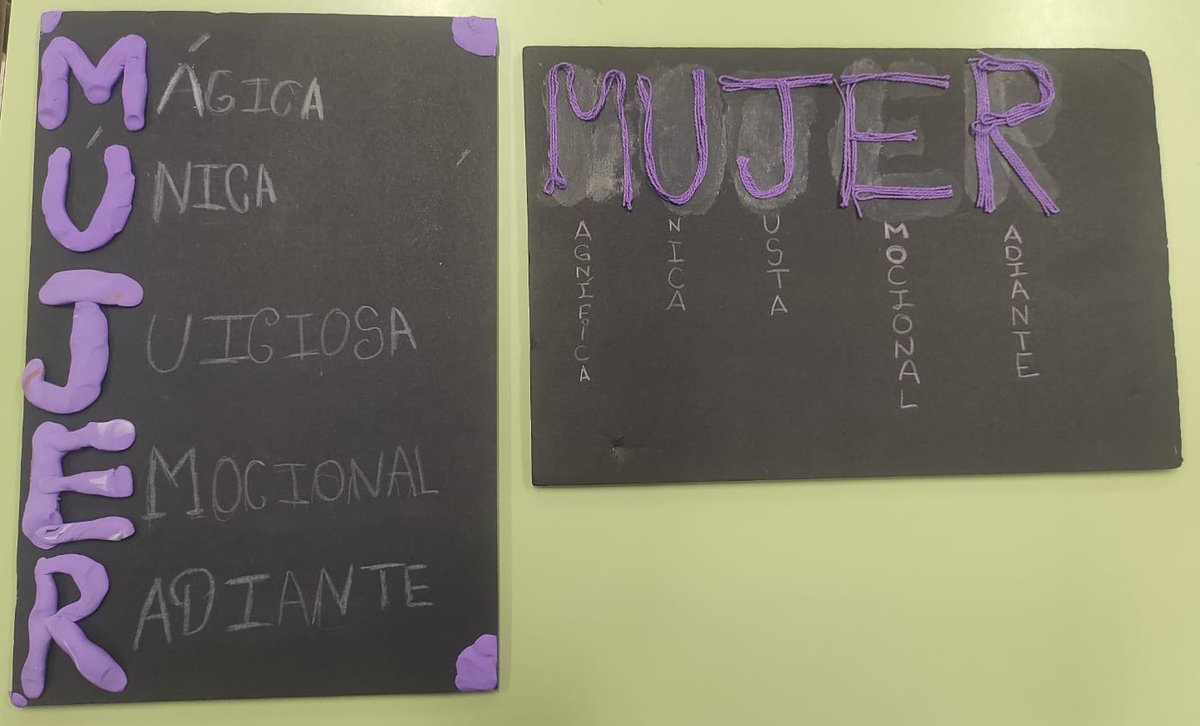 MÁGICA
ÚNICA
JUICIOSA
EMOCIONAL
RADIANTE
MUJER
AGNIFICA
NICA
USTA
MOCIONAL
ADIANTE